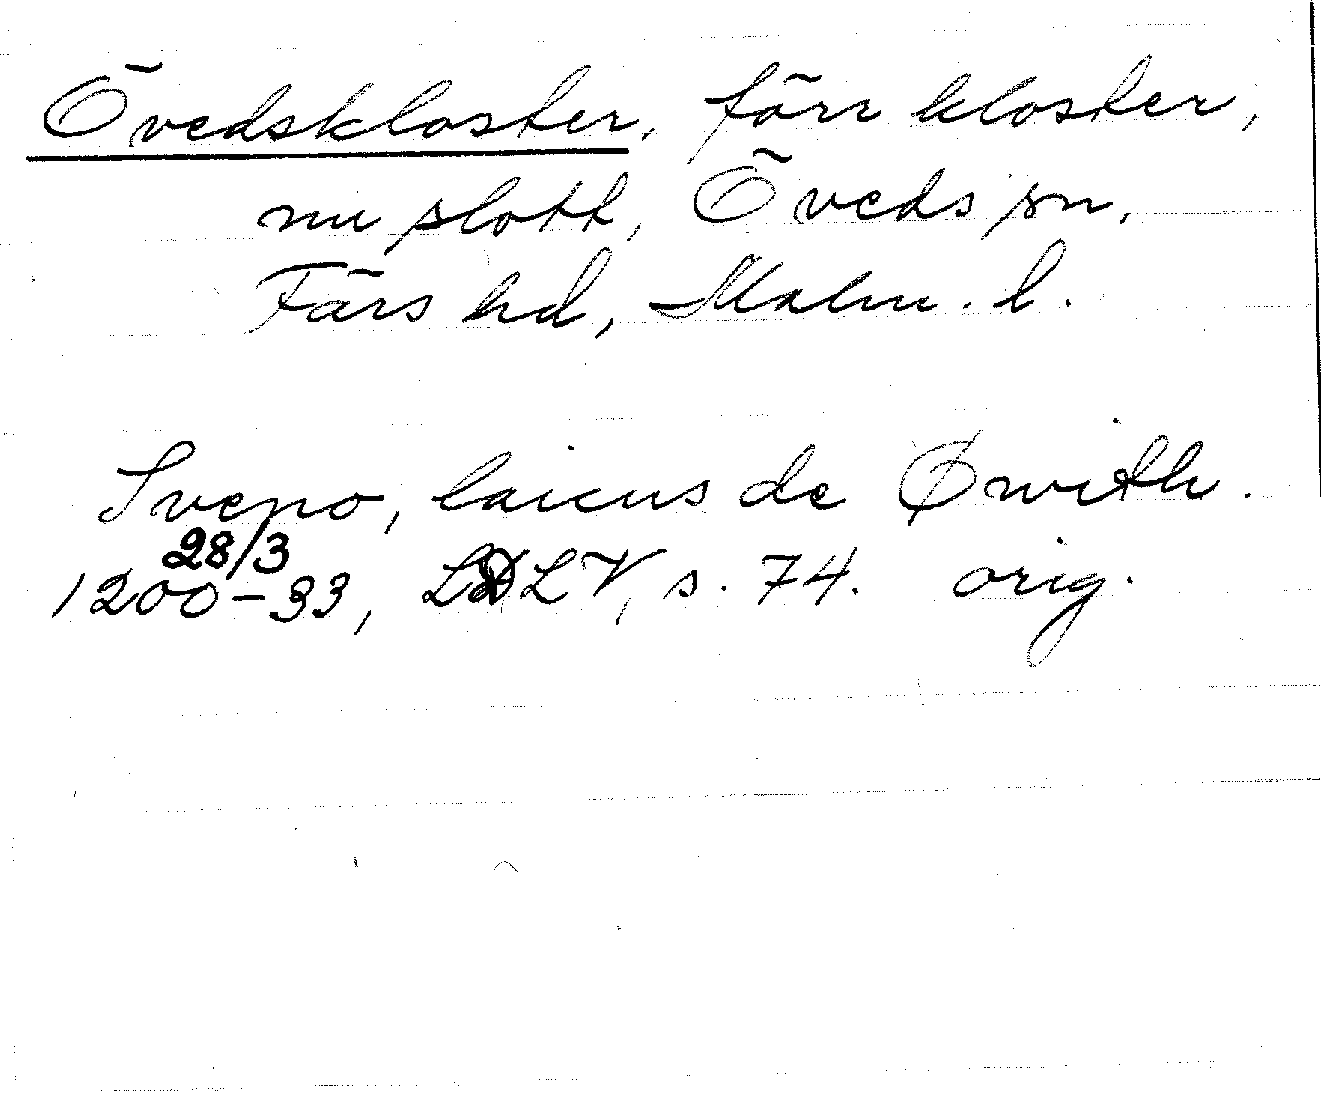 Övedskloster, förr kloster,
nu slott, Öveds sn,
Färs hd, Malm. l.
Sveno, laicus de Øwith.
28/3
1200-33, LDLV, s. 74. orig.